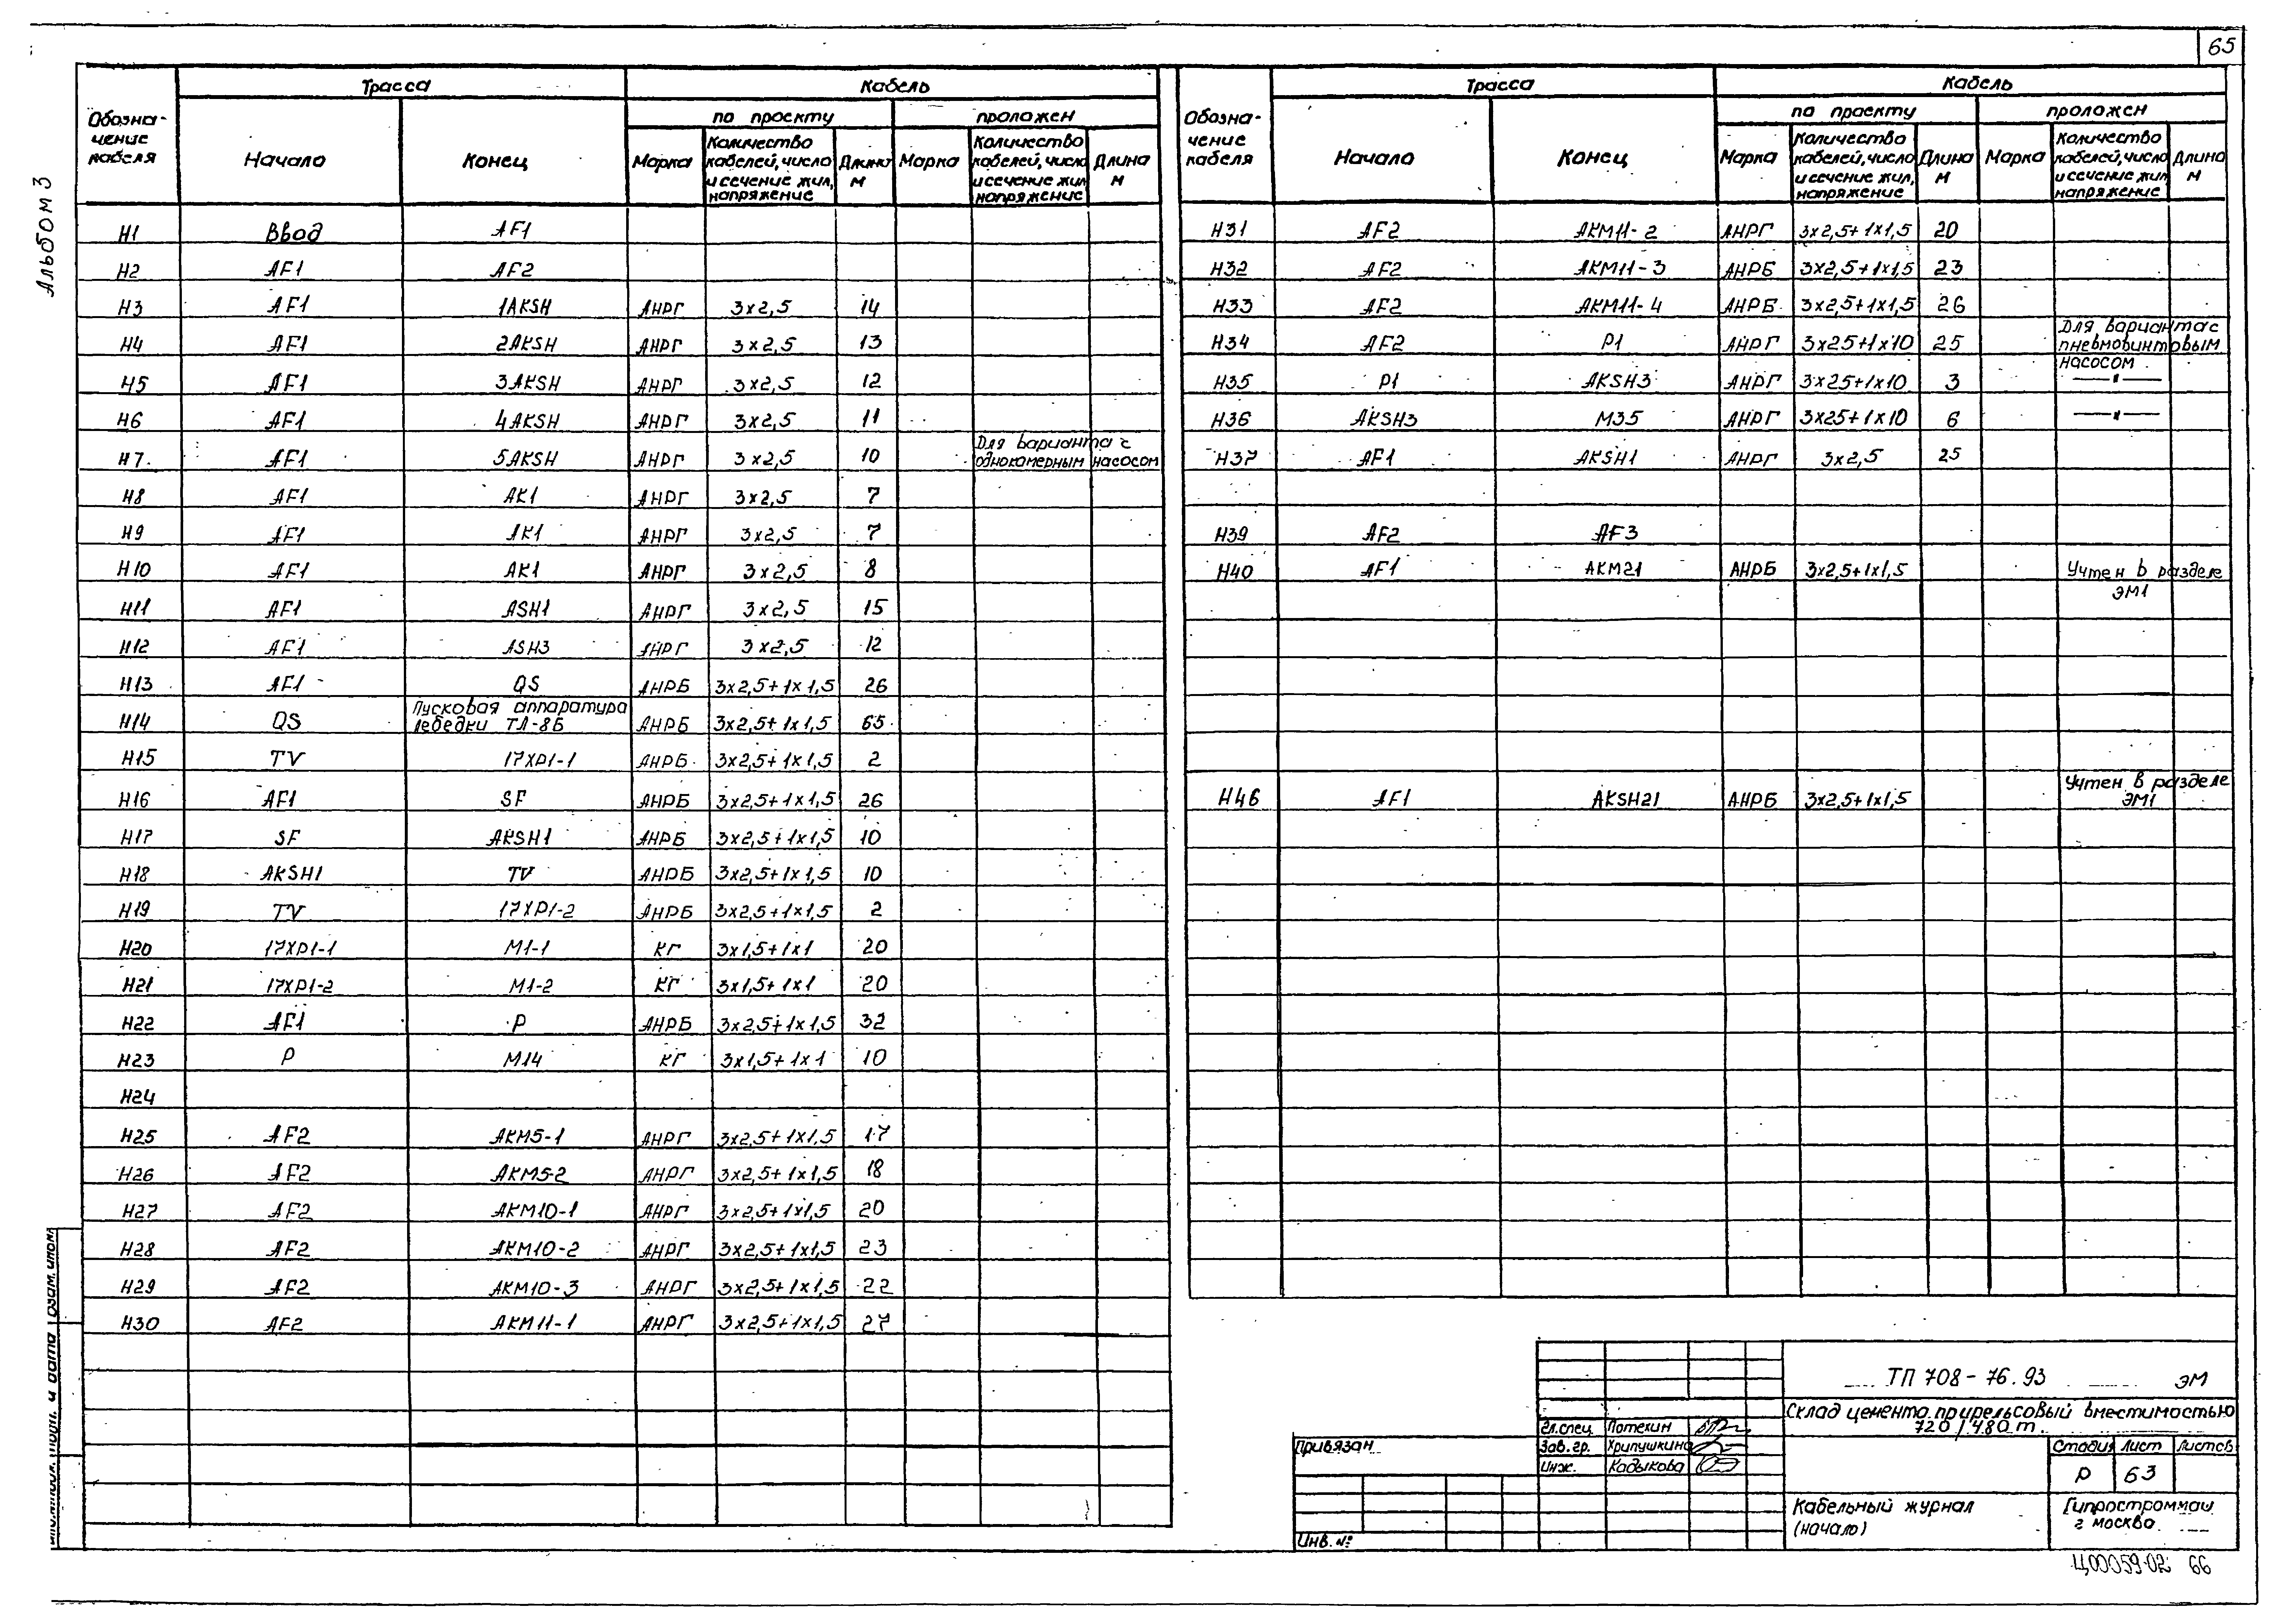 65
Альбом 3
Обозна-
чение
кабеля
Трасса
Кабель
Начало
Конец
по проекту
проложен
Марка
Количество
кабелей, число
и сечение жил,
напряжение
Длина
м
Марка
Количество
кабелей, число
и сечение жил
напряжение
Длина
м
Н1 Ввод AF1
Н2 AF1 AF2
Н3 AF1 1AKSH АНРГ 3х2,5 14
Н4 AF1 2AKSH АНРГ 3х2,5 13
Н5 AF1 3AKSH АНРГ 3х2,5 12
Н6 AF1 4AKSH АНРГ 3х2,5 11
Н7 AF1 5AKSH АНРГ 3х2,5 10 Для варианта с
однокамерным насосом
Н8 AF1 AK1 АНРГ 3х2,5 7
Н9 AF1 AK1 АНРГ 3х2,5 7
Н10 AF1 AK1 АНРГ 3х2,5 8
Н11 AF1 ASH1 АНРГ 3х2,5 15
Н12 AF1 ASH3 АНРГ 3х2,5 12
Н13 AF1 QS АНРБ 3х2,5+1х1,5 26
Н14 QS Пусковая аппаратура
лебедки ТЛ-8Б АНРБ 3х2,5+1х1,5 65
Н15 TV 17XP1-1 АНРБ 3х2,5+1х1,5 2
Н16 AF1 SF АНРБ 3х2,5+1х1,5 26
Н17 SF AKSH1 АНРБ 3х2,5+1х1,5 10
Н18 AKSH1 TV АНРБ 3х2,5+1х1,5 10
Н19 TV 17XP1-2 АНРБ 3х2,5+1х1,5 2
Н20 17XP1-1 M1-1 КГ 3х1,5+1х1 20
Н21 17XP1-2 M1-2 КГ 3х1,5+1х1 20
Н22 AF1 P АНРБ 3х2,5+1х1,5 32
Н23 P M14 КГ 3х1,5+1х1 10
Н24
Н25 AF2 AKM5-1 АНРГ 3х2,5+1х1,5 17
Н26 AF2 AKM5-2 АНРГ 3х2,5+1х1,5 18
Н27 AF2 AKM10-1 АНРГ 3х2,5+1х1,5 20
Н28 AF2 AKM10-2 АНРГ 3х2,5+1х1,5 23
Н29 AF2 AKM10-3 АНРГ 3х2,5+1х1,5 22
Н30 AF2 AKM11-1 АНРГ 3х2,5+1х1,5 27
Обозна-
чение
кабеля
Трасса
Кабель
Начало
Конец
по проекту
проложен
Марка
Количество
кабелей, число
и сечение жил,
напряжение
Длина
м
Марка
Количество
кабелей, число
и сечение жил
напряжение
Длина
м
Н31 AF2 AKM11-2 АНРГ 3х2,5+1х1,5 20
Н32 AF2 AKM11-3 АНРБ 3х2,5+1х1,5 23
Н33 AF2 AKM11-4 АНРБ 3х2,5+1х1,5 26
Н34 AF2 P1 АНРГ 3х25+1х10 25 Для варианта с
пневмовинтовым
насосом
Н35 P1 AKSH3 АНРГ 3х25+1х10 3 —"—
Н36 AKSH3 M35 АНРГ 3х25+1х10 6 —"—
Н37 AF1 AKSH1 АНРГ 3х2,5 25
Н39 AF2 AF3
Н40 AF1 AKM21 АНРБ 3х2,5+1х1,5 Учтен в разделе
ЭМ1
Н46 AF1 AKSH21 АНРБ 3х2,5+1х1,5 Учтен в разделе
ЭМ1
ТП 708-76.93 ЭМ
Склад цемента прирельсовый вместимостью
720/480 т.
Гл.спец. Потехин
Зав.гр. Хрипушкина
Инж. Кадыкова
Привязан
Инв. №
Стадия Лист Листов
Р 63
Кабельный журнал
(начало)
Гипростроммаш
г москва
Ц00059-02 66